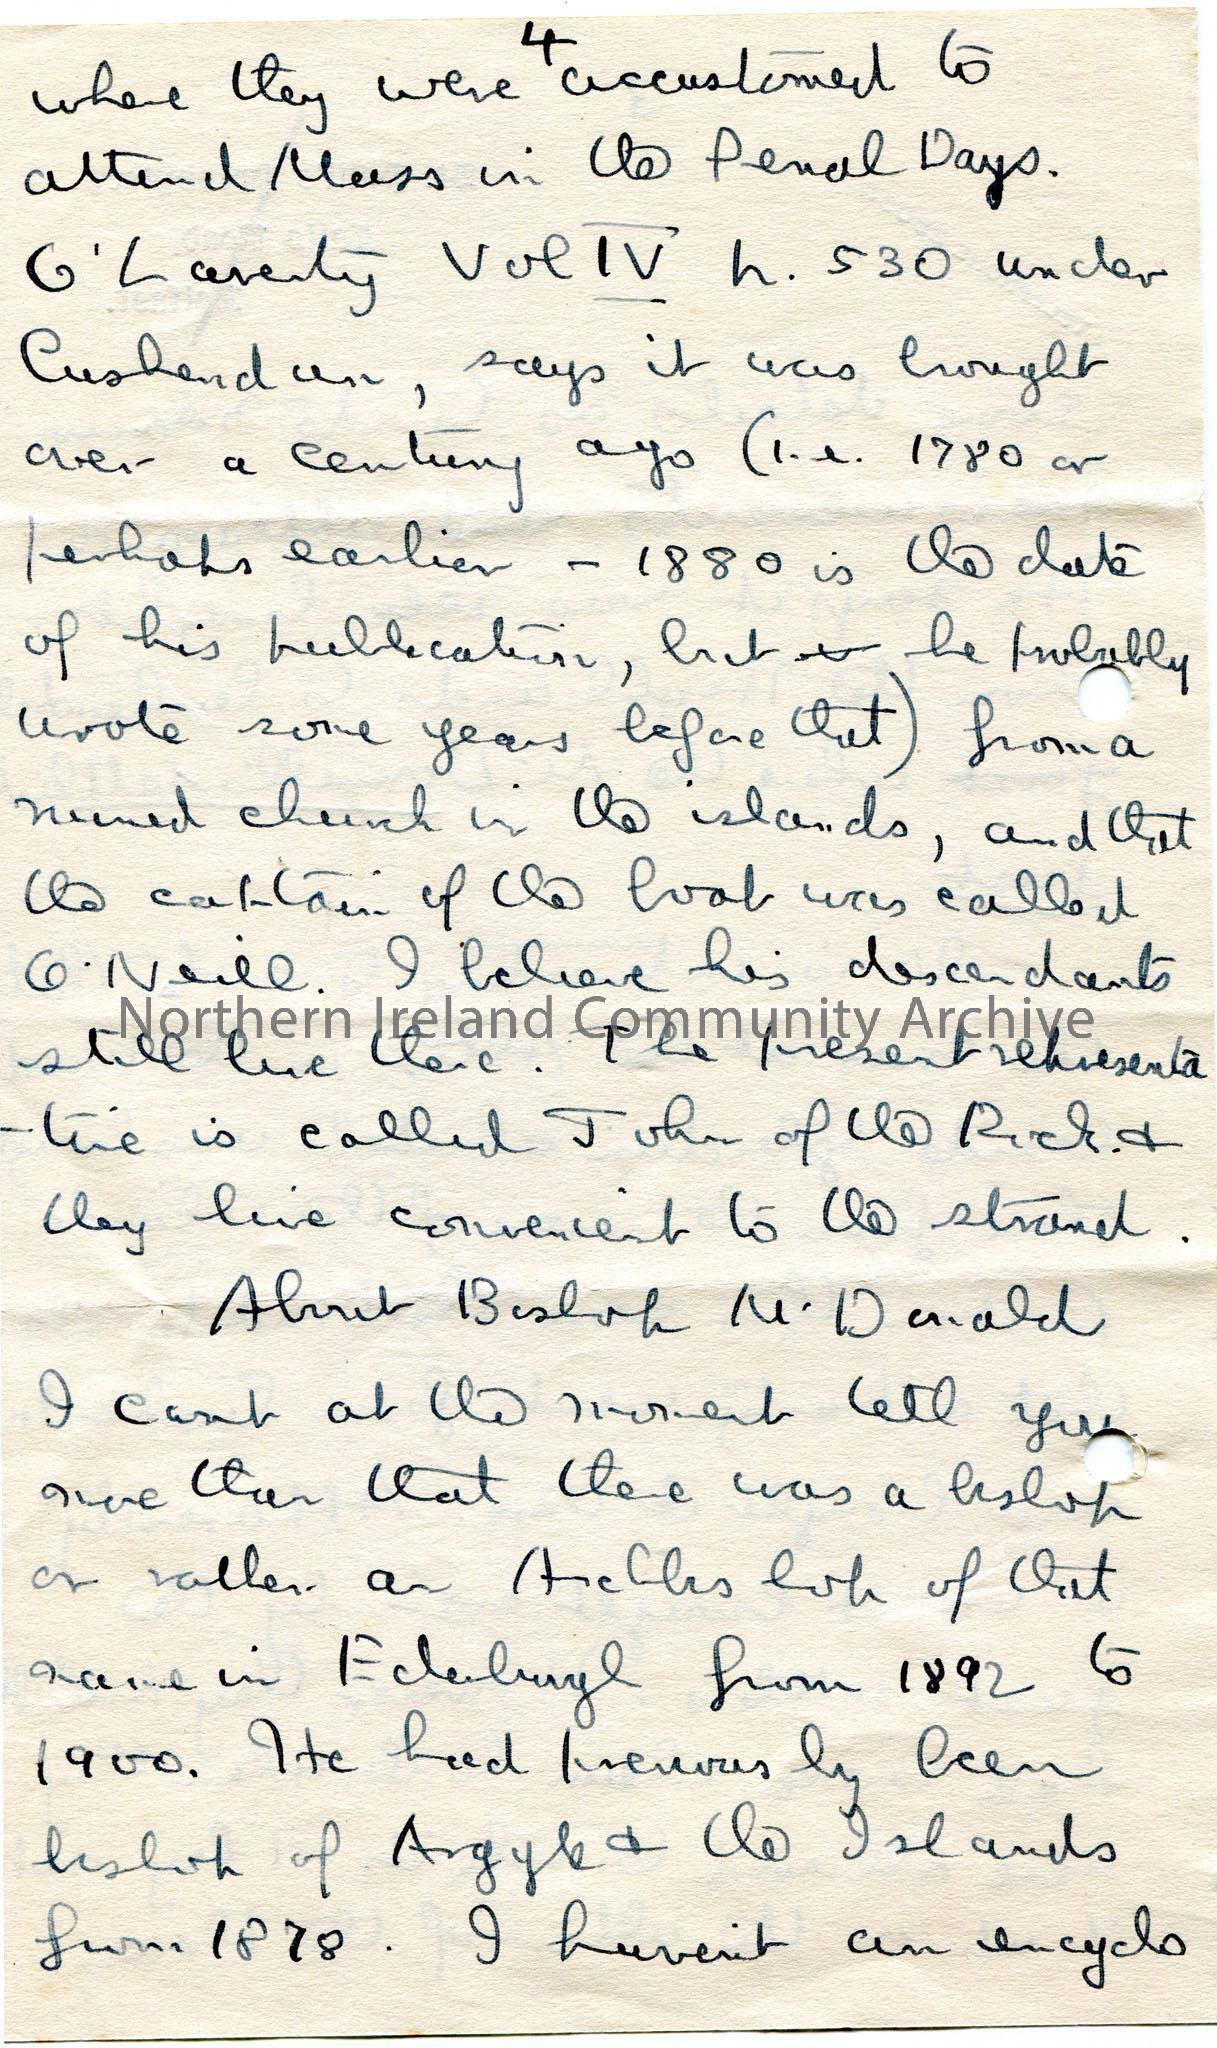 4
where they were accustomed to
attend Mass in the Penal Days.
O'Laverty Vol IV p. 530 under
Cushendun, says it was brought
over a century ago (i.e. 1780 or
perhaps earlier - 1880 is the date
of his publication, but he probably
wrote some years before that) from a
ruined church in the islands, and that
the captain of the boat was called
O'Neill. I believe his descendants
Northern Ireland Community Archive
still live there. The present representa
-tive is called John of the Rock &
they live convenient to the strand.
About Bishop McDonald
I can't at the moment tell you
more than that there was a bishop
or rather an Archbishop of that
name in Edinburgh from 1892 to
1900. He had previously been
bishop of Argyle & the Islands
from 1878. I haven't an encyclo